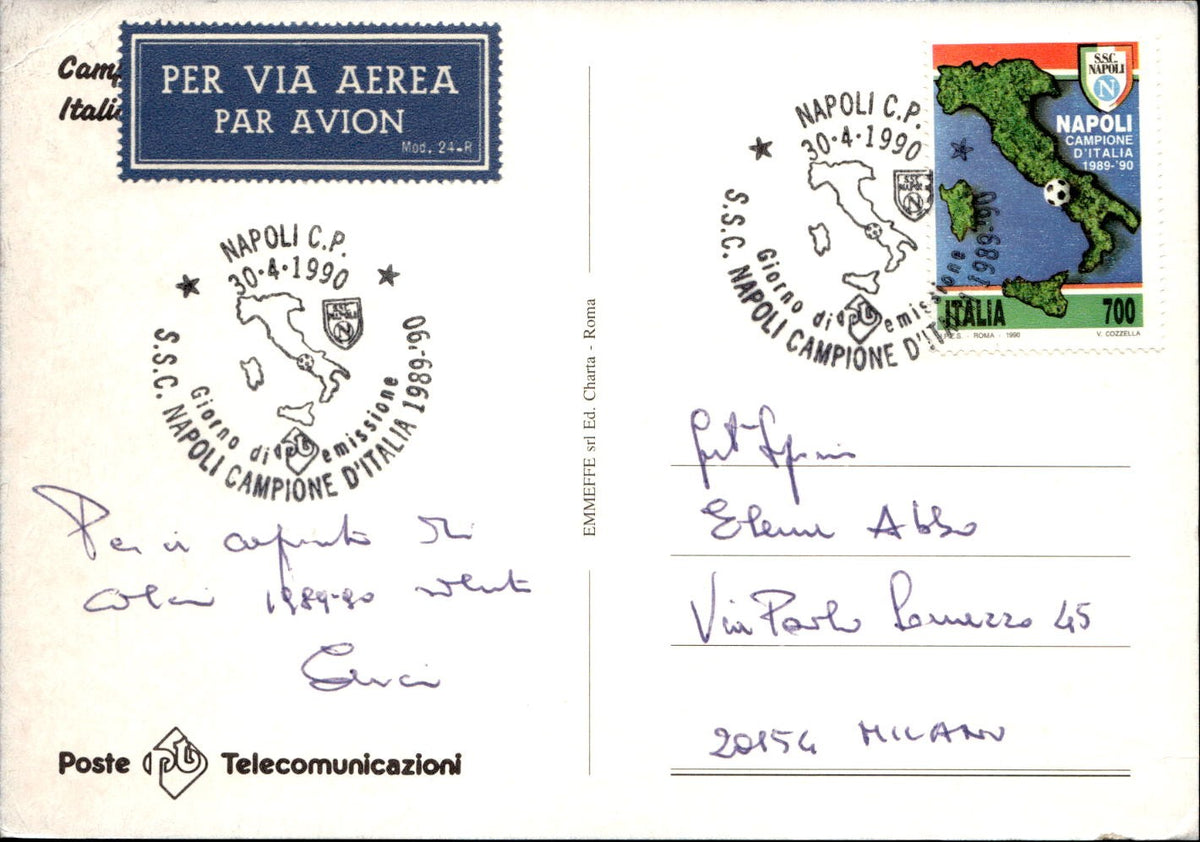 Camp
Italia
PER VIA AEREA
PAR AVION
Mod. 24-R
NAPOLI C.P.
30·4·1990
S.S.C. NAPOLI
N
Giorno di emissione
S.S.C. NAPOLI CAMPIONE D'ITALIA 1989-'90
Per
1989-90
Poste Telecomunicazioni
EMMEFFE srl Ed. Charta - Roma
NAPOLI C.P.
30·4·1990
SSC NAPOLI
N
Giorno di emissione
S.S.C. NAPOLI CAMPIONE D'ITALIA 1989-90
S.S.C.
NAPOLI
N
NAPOLI
CAMPIONE
D'ITALIA
1989-'90
ITALIA 700
I.P.Z.S. - ROMA - 1990 V. COZZELLA
Abbo
Via Paolo 45
20154 MILANO